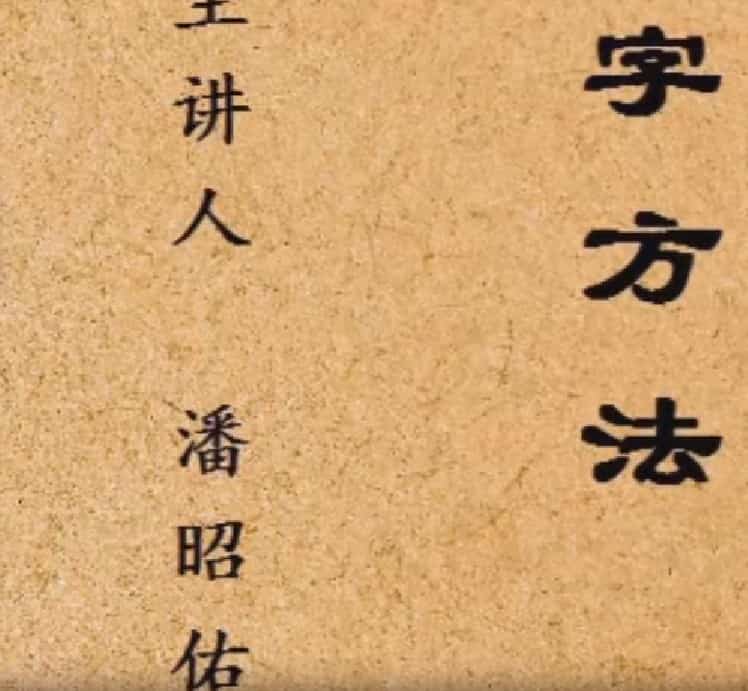 字方法
主讲人 潘昭佑